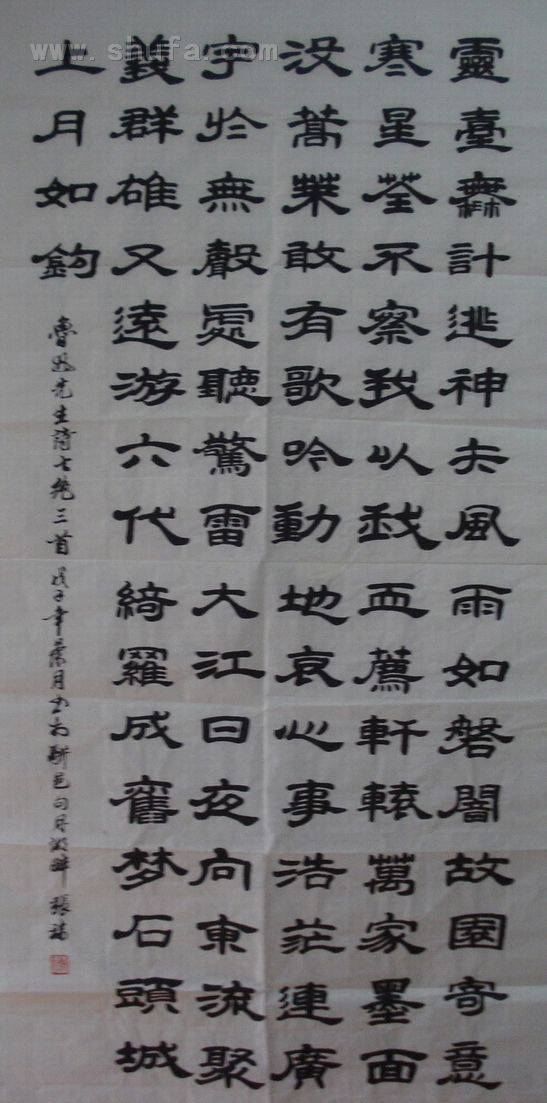 www.shufa.com
靈臺無計逃神矢風雨如磐闇故園寄意
寒星荃不察我以我血薦軒轅萬家墨面
沒蒿萊敢有歌吟動地哀心事浩茫連廣
宇於無聲處聽驚雷大江日夜向東流聚
義群雄又遠游六代綺羅成舊梦石頭城
上月如鈎
魯迅先生詩七绝三首 戊子年月书於駢邑向月湖畔 張